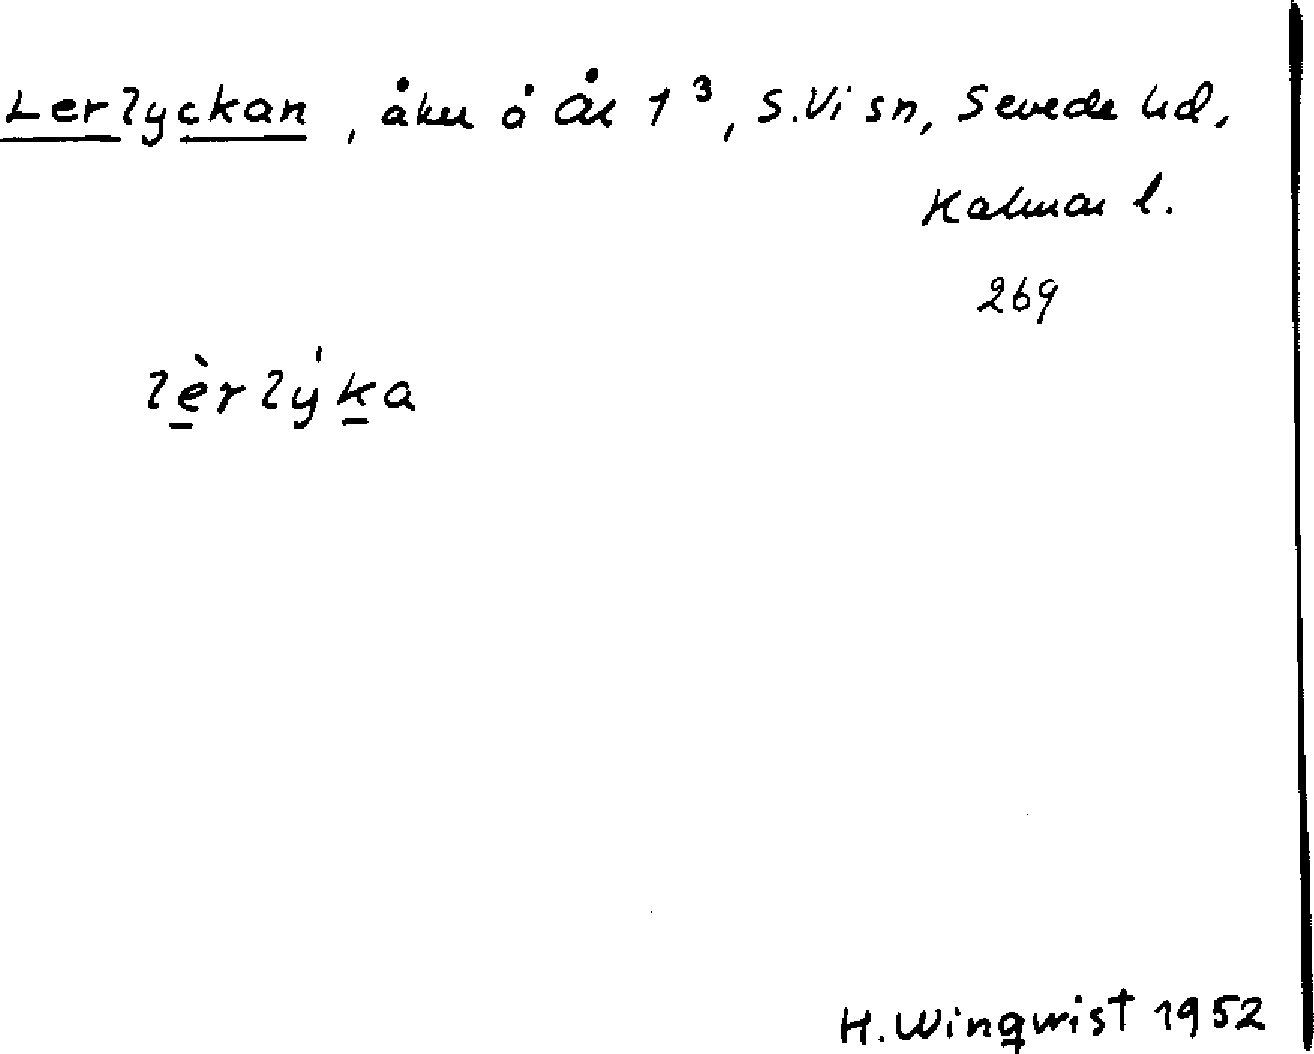 Lerlyckan, åker å År 1³, S.Vi sn, Sevede hd,
Kalmar l.
269
lèrlýka
H. Winqwist 1952